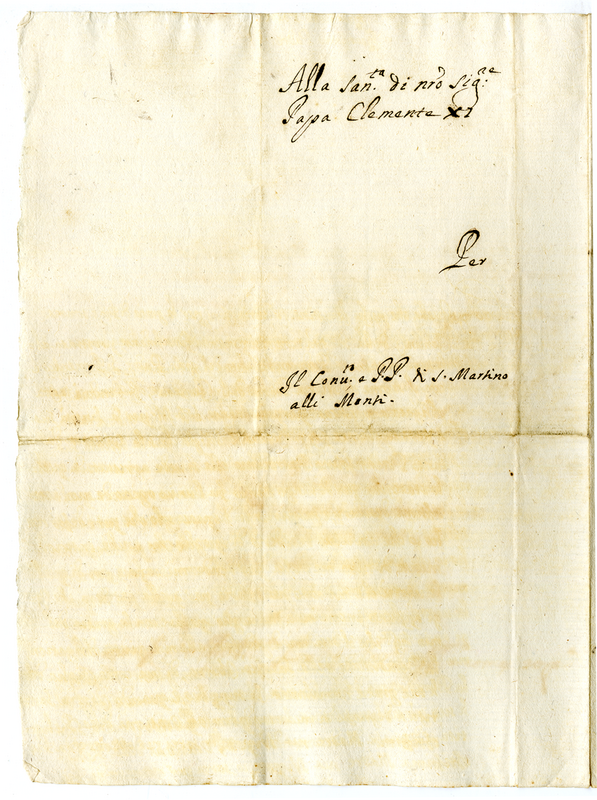 Alla San.ta di nrō Sig.re
Papa Clemente XI
Per
Il Conu.to e PP. di S. Martino
alli Monti.